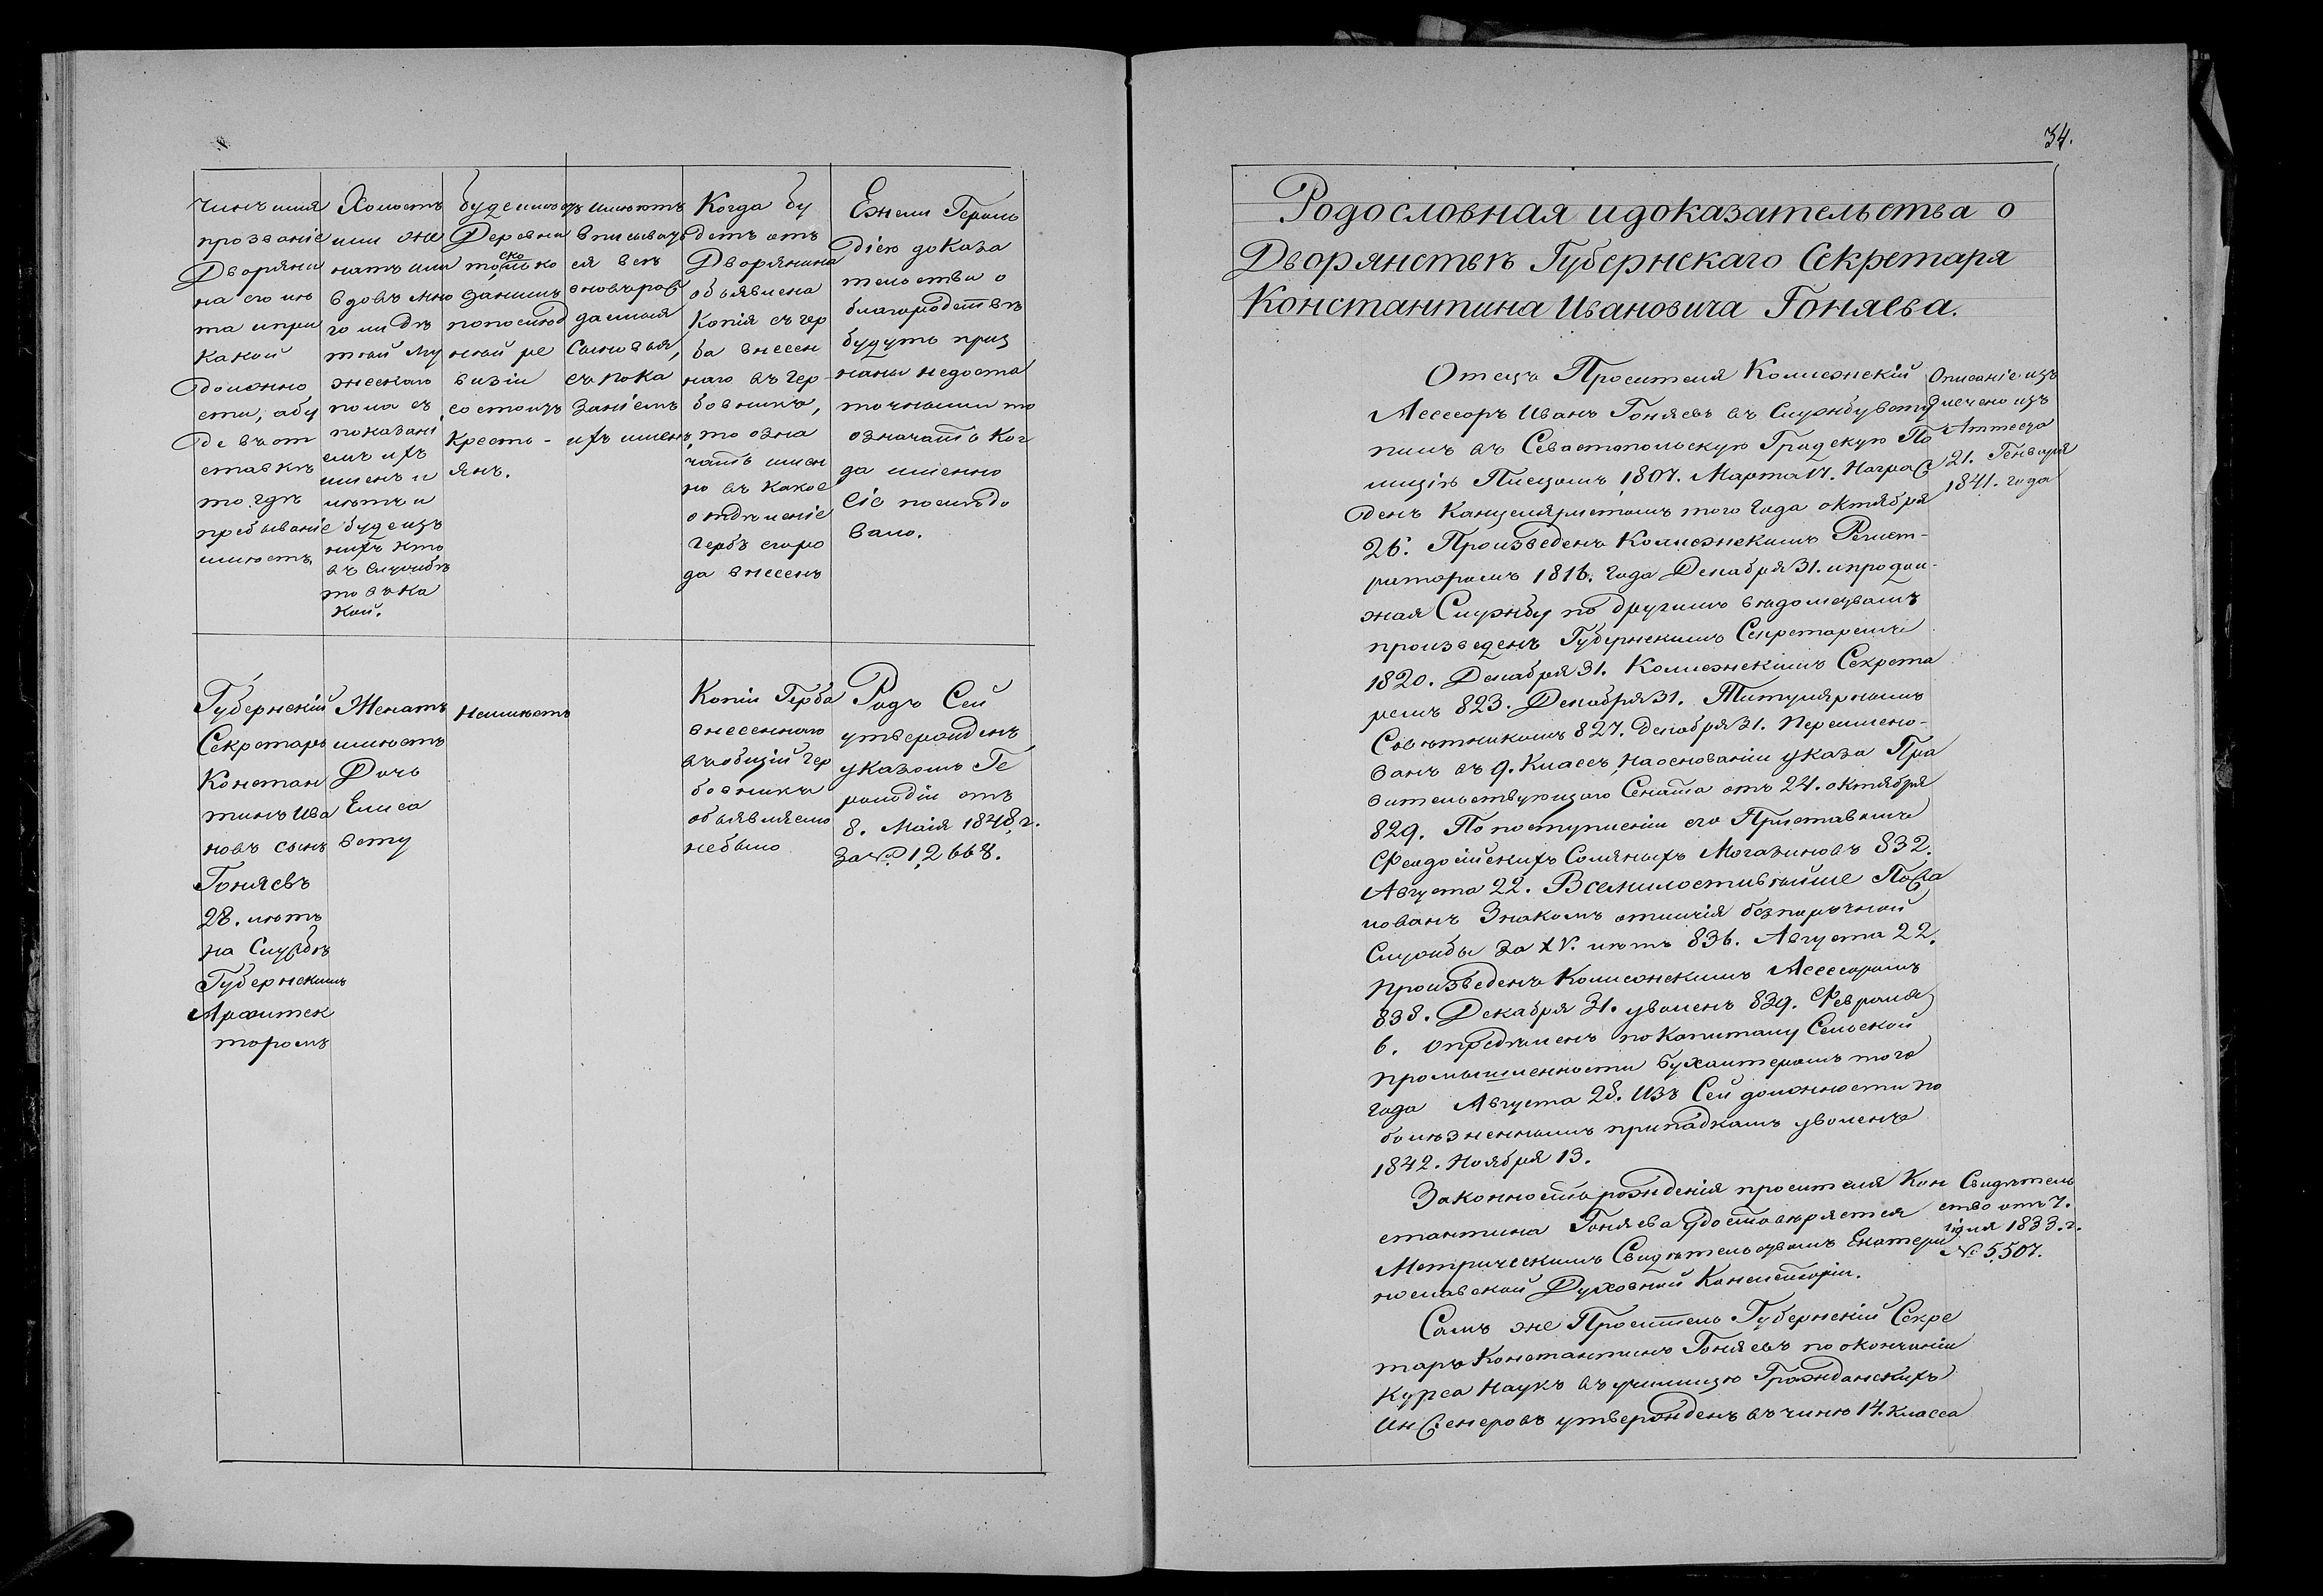 Чинъ имя
прозваніе
Дворяни
на его лѣ
та и при
какой
должно
сти, абу
де въ от
ставкѣ
то гдѣ
пребываніе
имѣетъ.
Холостъ
или же
натъ или
вдовъ мно
го ли дѣ
тей му
жескаго
пола съ
показані
емъ ихъ
именъ и
лѣтъ и
буде изъ
нихъ кто
въ службѣ
то въ ка
кой.
буде имѣетъ
Деревни
то сколько
за нимъ
по послѣд
ней ре
визіи
состоитъ
Кресть-
янъ.
Вписывать
ся всѣ
вновь рож
даемыя
Сыновья,
съ пока
заніемъ
ихъ именъ,
Когда бу
детъ отъ
Дворянина
объявлена
Копія съ гер
ба внесен
наго въ Гер-
бовникъ,
то озна
чать имен
но въ какое
отдѣленіе
Гербъ его ро
да внесенъ
Ежели Героль
діею доказа
тельства о
благородствѣ
будутъ приз
наны недоста
точными то
означать Ког
да именно
Сіе послѣдо
вало.
Губернскій
Секретарь
Констан
тинъ Ива
новъ сынъ
Гоняевъ
28. лѣтъ
на Службѣ
Губернскимъ
Архитек
торомъ
Женатъ
имѣетъ
Дочь
Елиса
вету
Неимѣетъ
Копіи Герба
внесеннаго
въ общій Гер
бовникъ
объявляемо
небыло
Родъ Сей
утвержденъ
указомъ Ге
рольдіи отъ
8. Маія 1848, г.
за № 12668.
34.
Родословная и доказательства о
Дворянствѣ Губернскаго Секретаря
Константина Ивановича Гоняева.
Отецъ Просителя Коллежскій
Ассесоръ Иванъ Гоняевъ въ Службу всту
пилъ въ Севастопольскую Градскую По
лицію Писцомъ 1807. Марта 17. Награж
денъ Канцеляристомъ того Года октября
26. Произведенъ Коллежскимъ Регист-
раторомъ 1816. Года Декабря 31. и продол-
жая Службу по другимъ вѣдомствамъ
произведенъ Губернскимъ Секретаремъ
1820. Декабря 31. Коллежскимъ Секрета
ремъ 823. Декабря 31. Титулярнымъ
Совѣтникомъ 827. Декабря 31. Переимено-
ванъ въ 9. Классъ, На основаніи указа Пра
вительствующаго Сената отъ 24. октября
829. По поступленіи его Приставомъ
Феодосійскихъ Соляныхъ Магазиновъ 832.
Августа 22. Всемилостивѣйше Пожа
лованъ Знакомъ отличія безпорочной
Службы За XV. лѣтъ 836. Августа 22.
Произведенъ Коллежскимъ Ассесоромъ
838. Декабря 31. уволенъ 839. Февраля
6. Опредѣленъ по Капиталу Сельской
Промышленности Бухгалтеромъ того
Года Августа 28. Изъ Сей должности по
болѣзненнымъ припадкамъ уволенъ
1842. Ноября 13.
Описаніе из
влечено изъ
Аттеста
21. Генваря
1841. года
Законность рожденія просителя Кон
стантина Гоняева Удостовѣряется
Метрическимъ Свидѣтельствомъ Екатери
нославской Духовной Консисторіи.
Свидѣтель
ство отъ 7.
Іюля 1833. г.
№ 5,507.
Самъ же Проситель Губернскій Секре
тарь Константинъ Гоняевъ по окончаніи
Курса Наукъ въ училищѣ Гражданскихъ
Инженеровъ утвержденъ въ чинѣ 14. класса